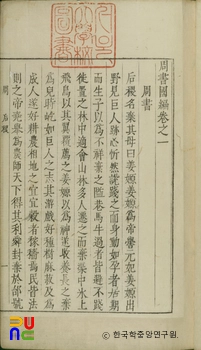 周書國編卷之一
周書
后稷名棄其母曰姜嫄姜嫄為帝嚳元妃姜嫄出
野見巨人跡心忻然說踐之而身動如孕者居期
而生子以為不祥棄之隘巷馬牛過者皆避不踐
徙置之林中適會山林多人遷之而棄渠中氷上
飛鳥以其翼覆薦之姜嫄以為神遂收養長之棄
為兒時屹如巨人之志其游戲好種樹麻菽及為
成人遂好耕農相地之宜宜穀者稼穡焉民皆法
則之帝堯舉為農師天下得其利舜封棄於邰號
周 后稷
ⓒ 한국학중앙연구원